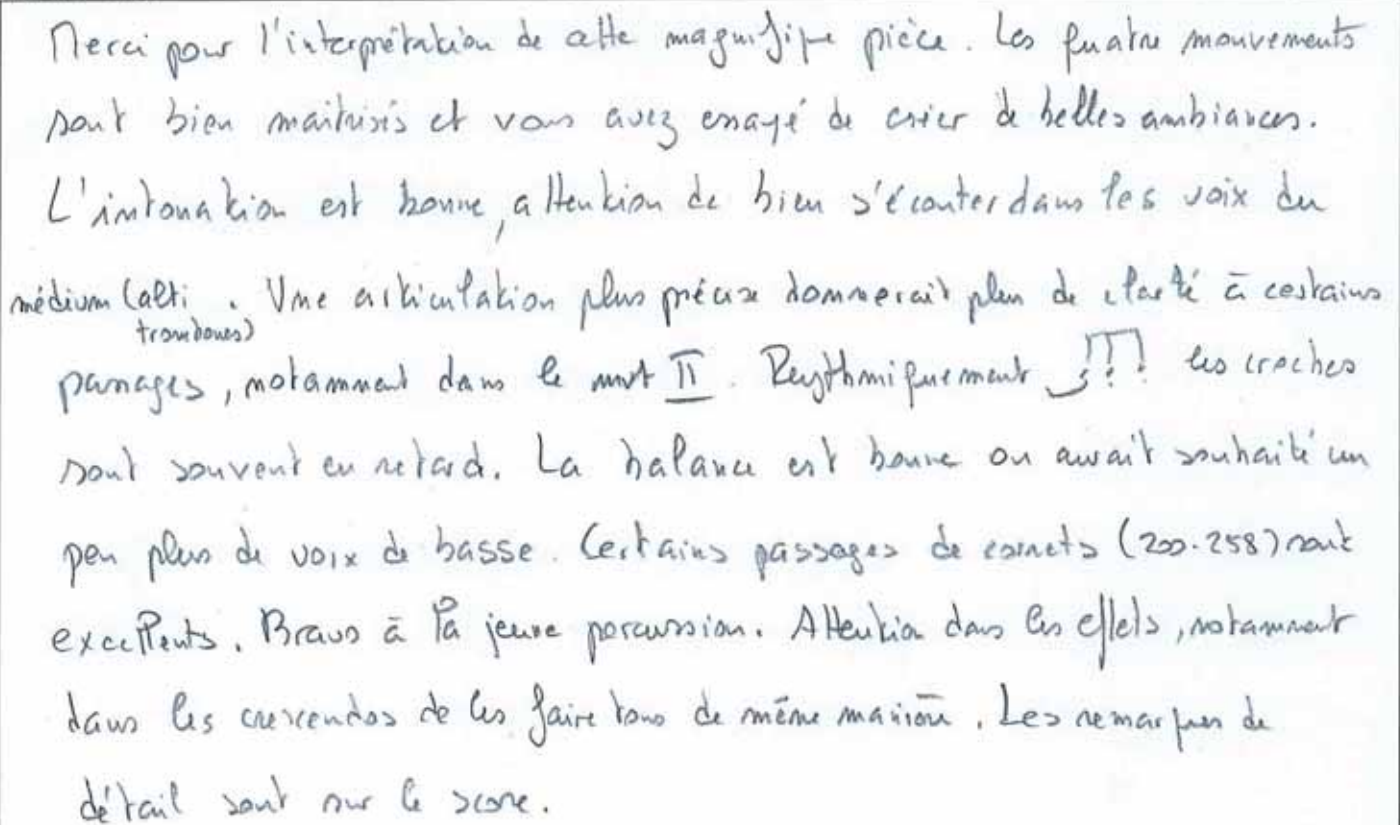 Merci pour l'interprétation de cette magnifique pièce. Les quatre mouvements
sont bien maitrisés et vous avez essayé de créer de belles ambiances.
L'intonation est bonne, attention de bien s'écouter dans les voix du
médium (alti trombones). Une articulation plus précise donnerait plus de clarté à certains
passages, notamment dans le mvt II. Rhythmiquement les croches
sont souvent en retard. La balance est bonne on aurait souhaité un
peu plus de voix de basse. Certains passages de cornets (200-258) sont
excellents. Bravo à la jeune percussion. Attention dans les effets, notamment
dans les crescendos de les faire tous de même manière. Les remarques de
détail sont sur le score.